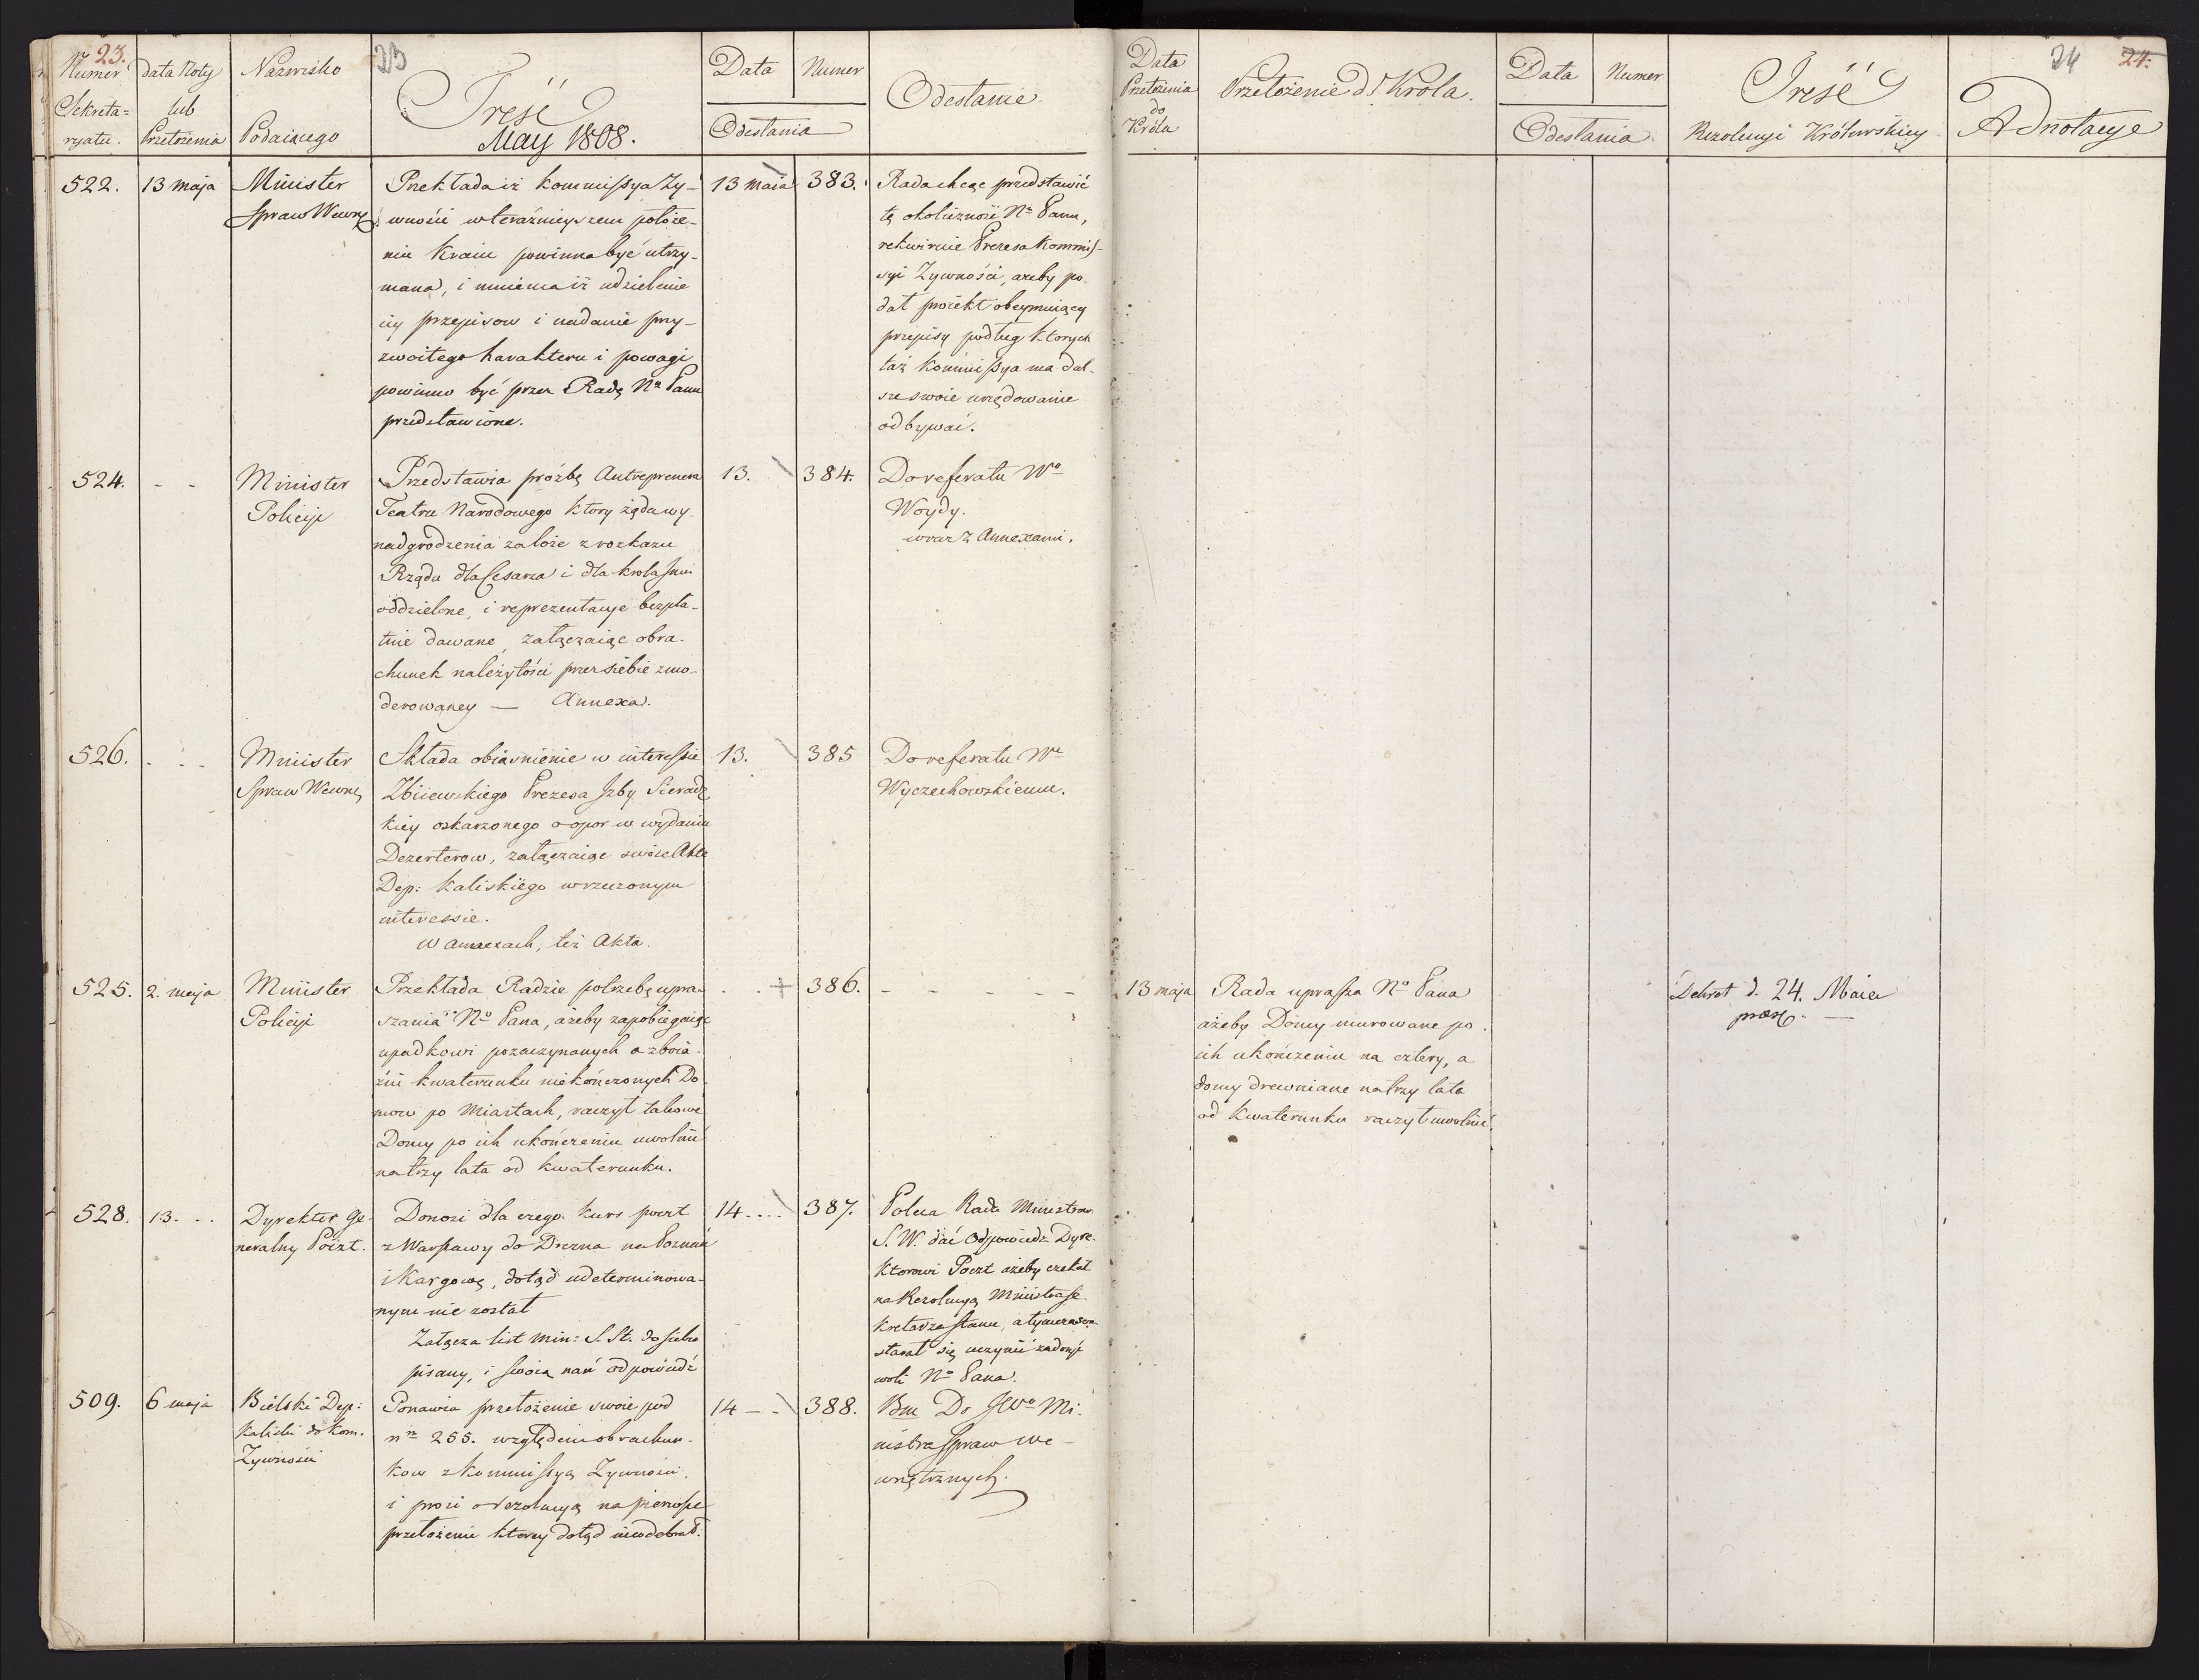 23.
23
Numer
Sekreta=
ryatu.
data Noty
lub
Przełożenia
Nazwisko
Podaiącego
Treść
May 1808.
Data
Numer
Odesłania
Odesłanie
522.
13 maja
Minister
Spraw Wewnę
Przekłada iż kommissya Ży-
wności w teraźnieyszem położe-
niu kraiu powinna być utrzy-
mana, i mniema iż udzielenie
iiy przepisow i nadanie przy-
zwoitego harakteru i powagi
powinno być przez Radę No Panu
przedstawione.
13 maia
383.
Rada chcąc przedstawić
tę okoliczność No Panu,
rekwiruie Prezesa Kommis-
syi Żywności, ażeby po-
dał proiekt obeymuiący
przepisy podług ktorych
taż kommissya ma dal-
sze swoie urzędowanie
odbywać.
524.
- -
Minister
Policyi
Przedstawia prożbę Antreprenera
Teatru Narodowego ktory żąda wy-
nadgrodzenia za loże z rozkazu
Rządu dla Cesarza i dla krola Jmci
oddzielone, i reprezentacye bezpła-
tnie dawane, załączaiąc obra-
chunek należytości przez siebie zmo-
derowaney — Annexa.
13.
384.
Do referatu Wo
Woydy.
wraz z Annexami.
526.
- - -
Minister
Spraw Wewnę
Składa obiasnienie w interessie
Zbiiewskiego Prezesa Izby Sieradz
kiey oskarzonego o opor w wydaniu
Dezerterow, załączaiąc swoie Akta
Dep: Kaliskiego w rzeczonym
interessie.
w Annexach, też Akta.
13.
385
Do referatu Wo
Wyczechowskiemu.
525.
2. maja
Minister
Policyi
Przekłada Radzie potrzebę upra-
szania No Pana, ażeby zapobiegaiąc
upadkowi pozaczynanych a z boia-
źni kwaterunku niekończonych Do-
mow po Miastach, raczył takowe
Domy po ich ukończeniu uwolnić
na trzy lata od kwaterunku.
386.
- - - - -
528.
13. . .
Dyrektor Ge-
neralny Poczt.
Donosi dla czego kurs poczt
z Warszawy do Drezna na Poznań
i Kargowę, dotąd udeterminowa-
nym nie został
Załącza list Min: S. St. do siebie
pisany, i swoią nań odpowiedź
14 . . .
387.
Poleca Rada Ministrow
S. W. dać Odpowiedź Dyre-
ktorowi Poczt ażeby czekał
na Rezolucyą Ministra Se-
kretarza stanu, a tymczasem
starał się uczynić zadosyć
woli No Pana.
509.
6 maja
Bielski Dep:
Kaliski do Kom.
Żywności
Ponawia przełożenie swoie pod
no 255. względem obrachun-
kow z kommissyą Żywności.
i prosi o rezolucyą na pierwsze
przełożenie ktorey dotąd nieodebrał.
14 - -
388.
Bm Do JWo Mi-
nistra Spraw We-
wnętrznych.
24
24.
Data
Przełożenia
do
Króla
Przełożenie d. Krola.
Data
Numer
Odesłania
Treść
Rezolucyi Królewskiey
Adnotacye
13 maja
Rada uprasza No Pana
ażeby Domy murowane po
ich ukończeniu na cztery, a
domy drewniane na trzy lata
od kwaterunku raczył uwolnić.
Dekret d. 24. Maia